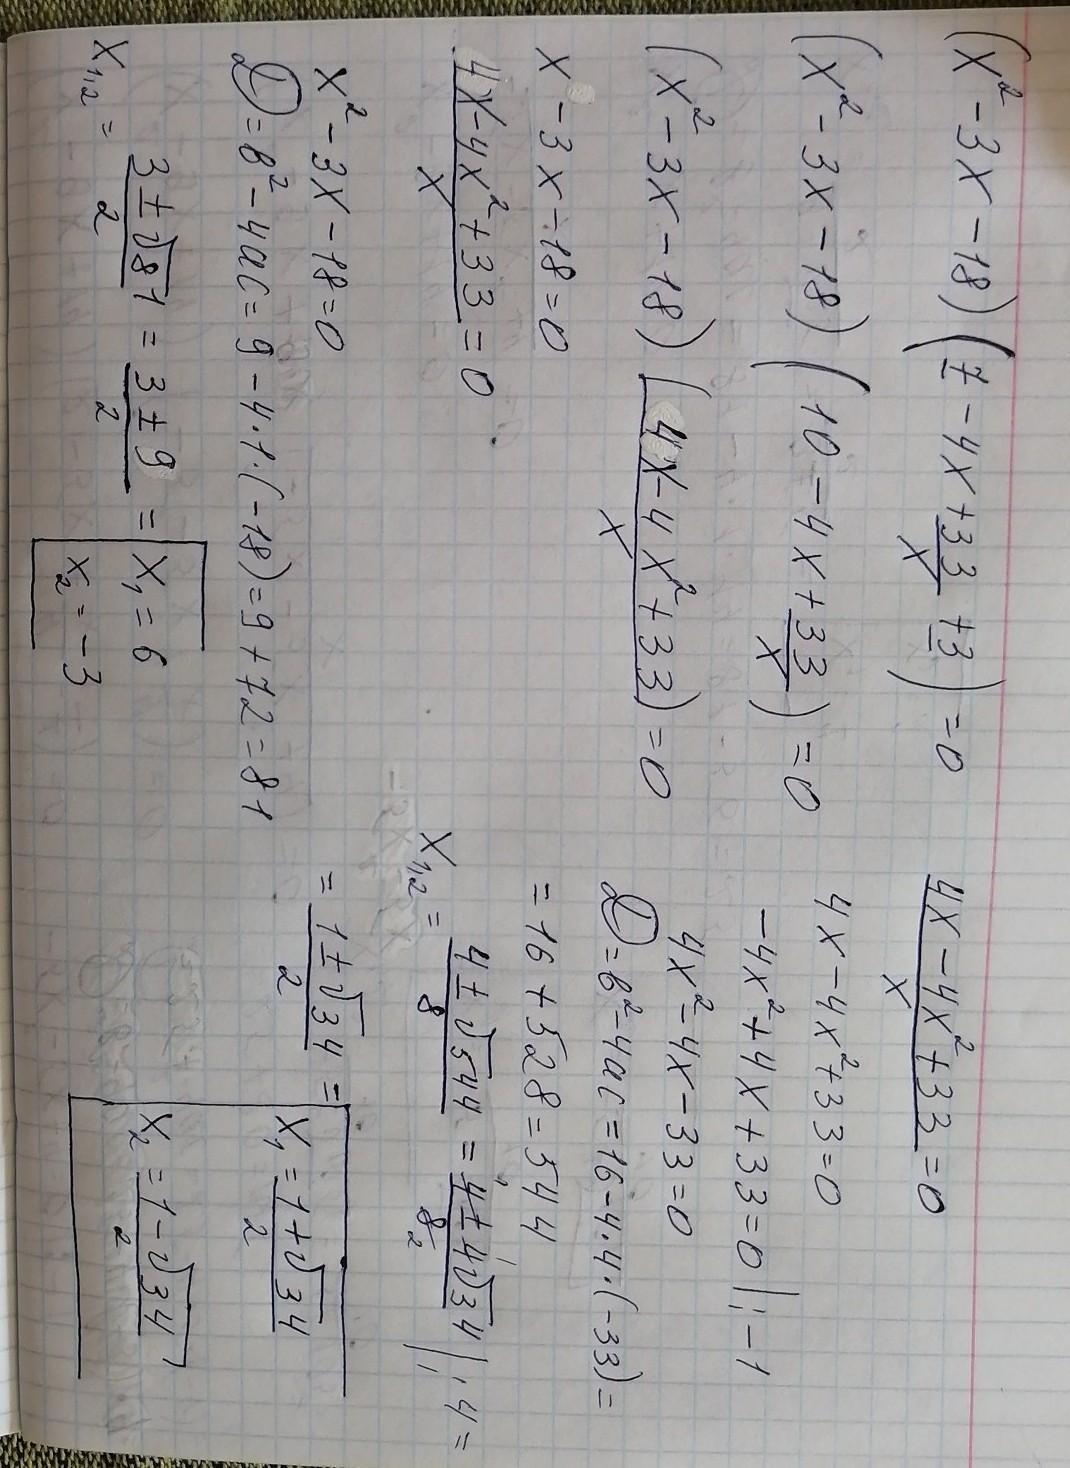 (x² - 3x - 18) (7 - 4x + 33/x + 3) = 0
(x² - 3x - 18) (10 - 4x + 33/x) = 0
(x² - 3x - 18) (4x - 4x² + 33)/x = 0
x - 3x - 18 = 0
4x - 4x² + 33/x = 0
x² - 3x - 18 = 0
D = b² - 4ac = 9 - 4·1·(-18) = 9 + 72 = 81
x₁,₂ = 3 ± √81/2 = 3 ± 9/2 = x₁ = 6
x₂ = -3
4x - 4x² + 33/x = 0
4x - 4x² + 33 = 0
-4x² + 4x + 33 = 0 |: -1
4x² - 4x - 33 = 0
D = b² - 4ac = 16 - 4·4·(-33) =
= 16 + 528 = 544
x₁,₂ = 4 ± √544/8 = 4 ± 4√34/8 |: 4 =
= 1 ± √34/2 = x₁ = 1 + √34/2
x₂ = 1 - √34/2